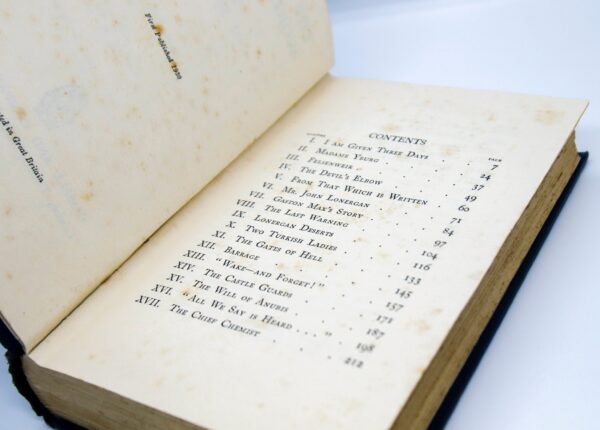 First Published 1930
ted in Great Britain
CONTENTS
CHAPTER PAGE
I. I am Given Three Days . . . 7
II. Madame Yburg . . . . 24
III. Felsenweir . . . . 37
IV. The Devil's Elbow . . . . 49
V. From That Which is Written . . 60
VI. Mr. John Lonergan . . . 71
VII. Gaston Max's Story . . . 84
VIII. The Last Warning . . . 97
IX. Lonergan Deserts . . . 104
X. Two Turkish Ladies . . . 116
XI. The Gates of Hell . . . 133
XII. Barrage . . . . 145
XIII. "Wake—and Forget!" . . . 157
XIV. The Castle Guards . . . 171
XV. The Will of Anubis . . . 187
XVI. "All We Say is Heard . . . " . 198
XVII. The Chief Chemist . . . 212